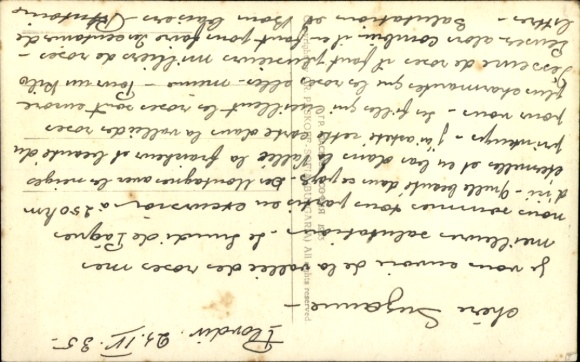 Plovdiv 23.IV.35.
chère Suzanne -
je vous envoie de la vallée des roses mes
meilleures salutations. - Le lundi de Pâques
nous sommes tous partis en excursion à 250 km
d'ici - Quelle beauté dans ce pays. - Des Montagnes avec les neiges
eternelle et en bas dans la Vallée la grandeur et beauté du
printemps - j'ai acheté cette carte dans la vallée de roses
pour vous - Les filles qui cueillent les roses sont encore
plus charmantes que les roses elles-meme - Pour un Kilo
d'essence de rose il faut plusieurs milliers de roses -
Penser alors combien il en faut pour faire des centaines de
litres - Salutations et Bon baisers
All rights reserved